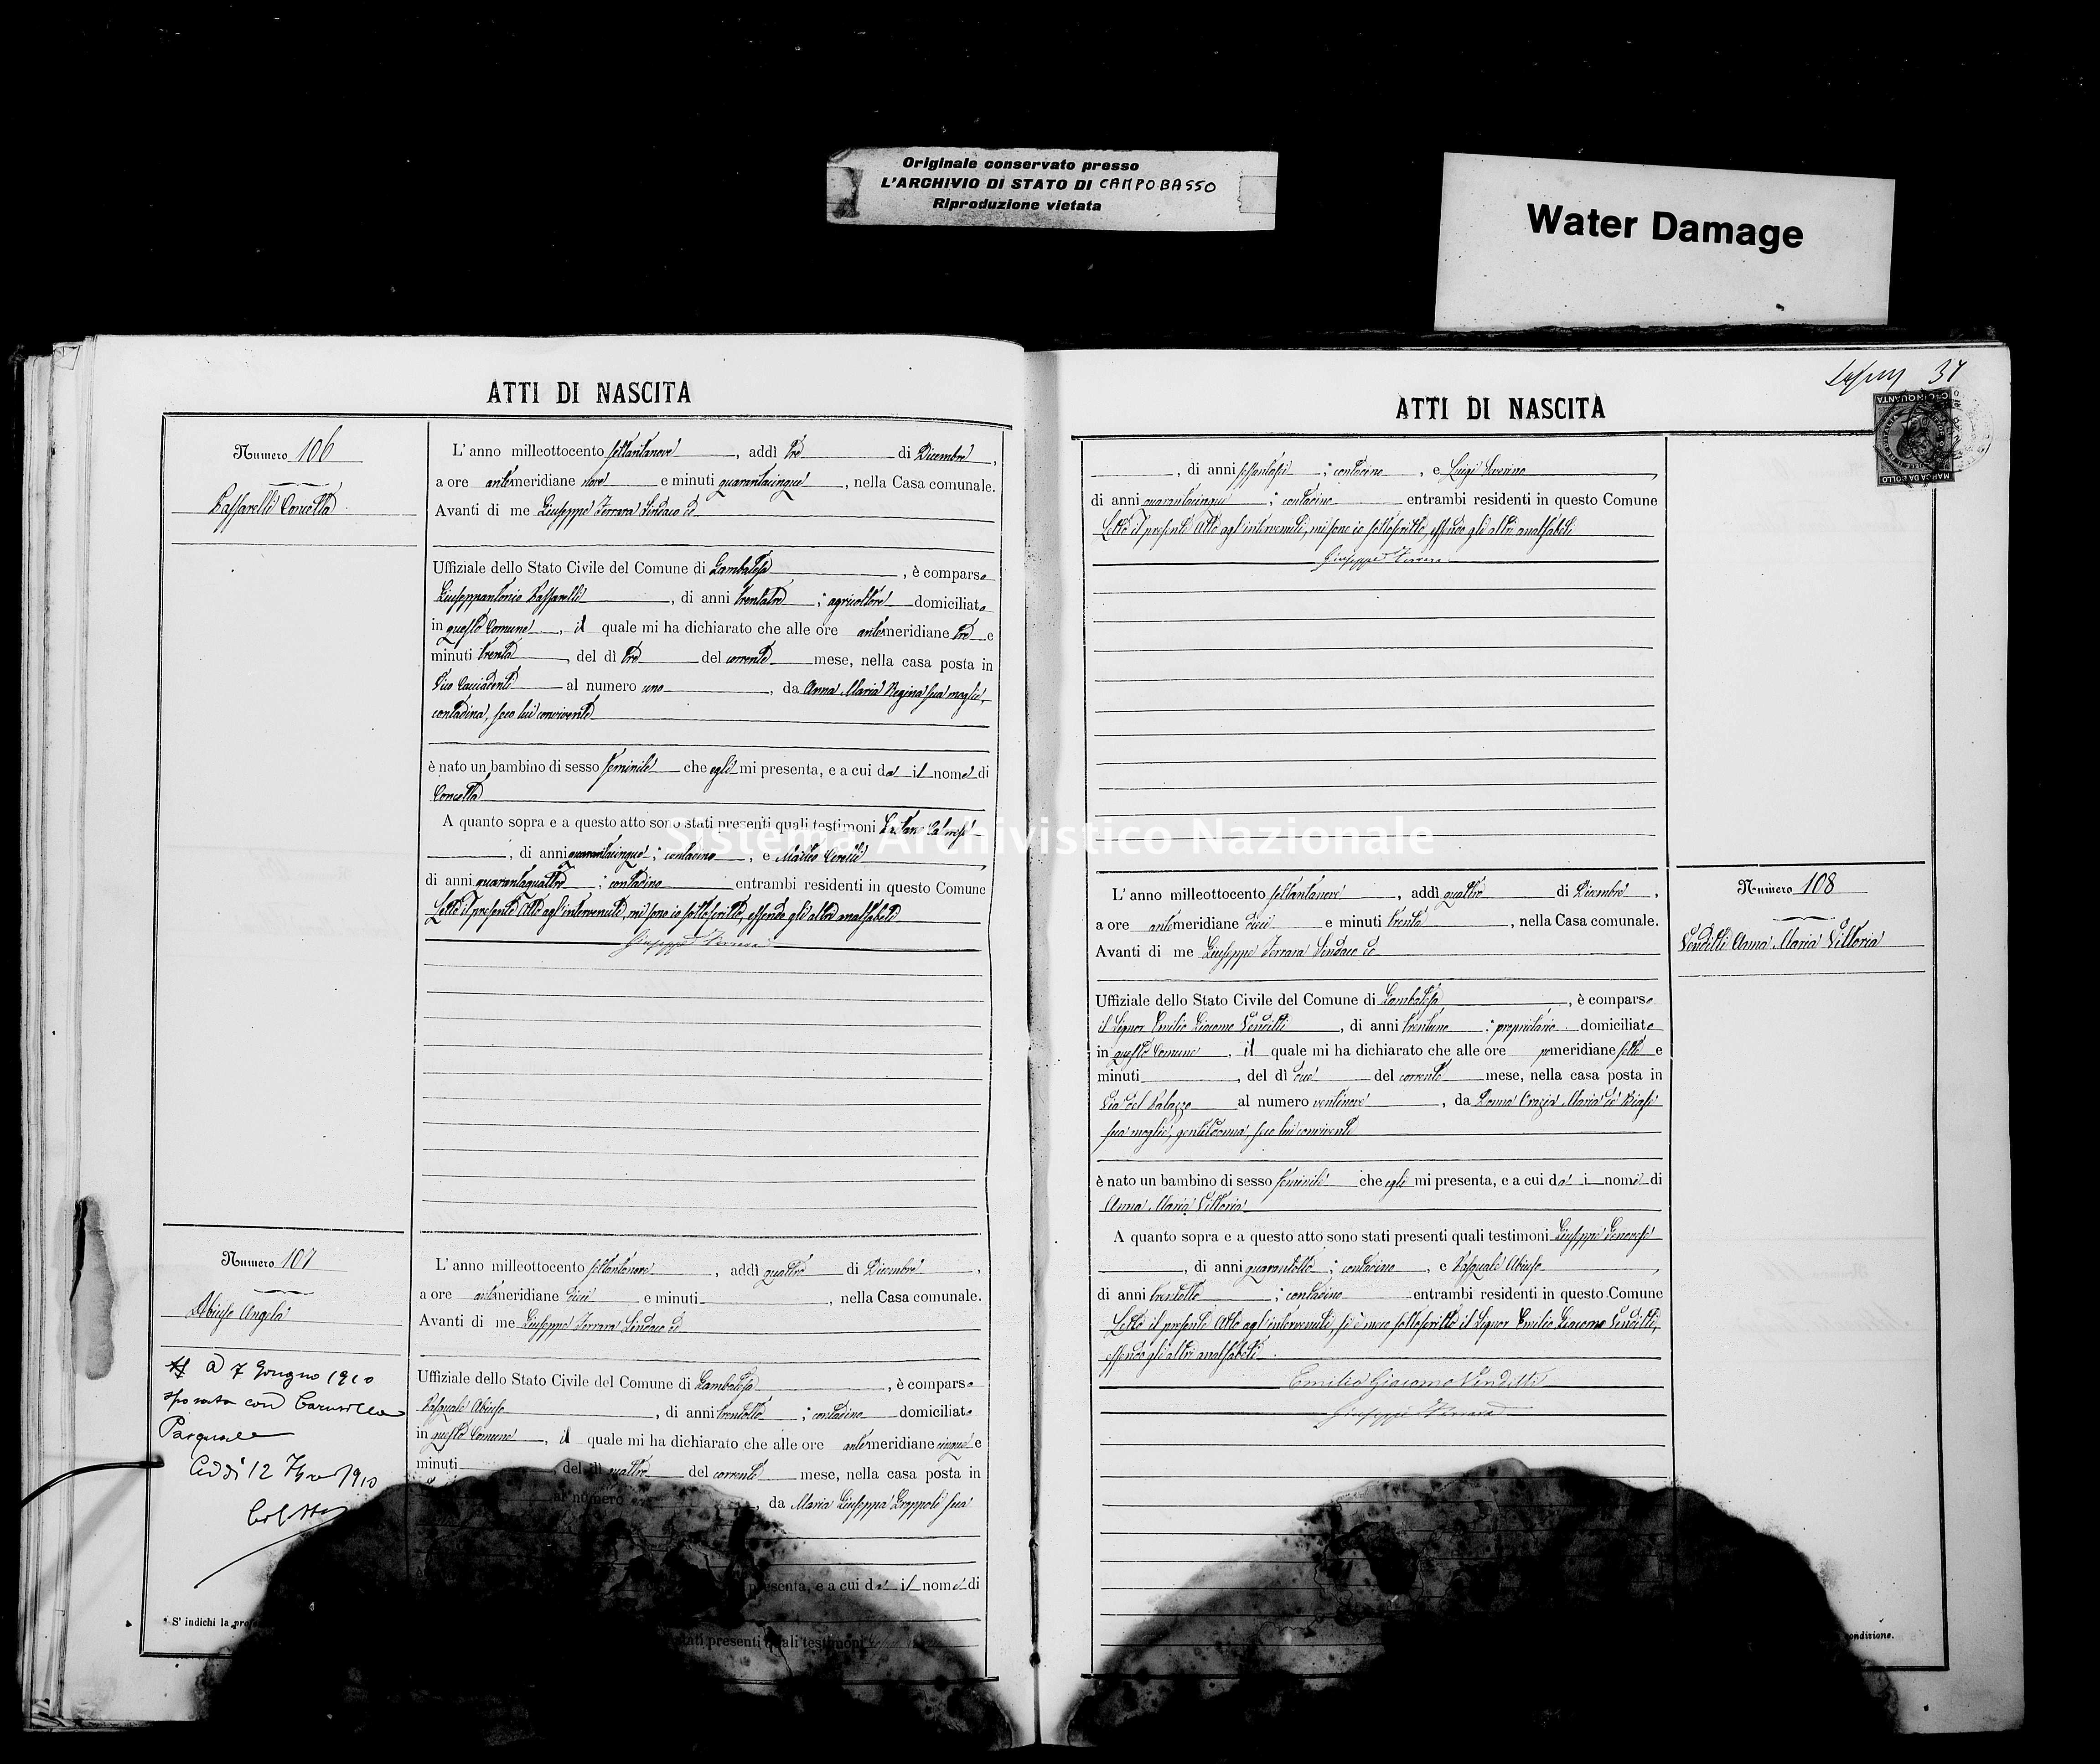 Originale conservato presso
L'ARCHIVIO DI STATO DI CAMPOBASSO
Riproduzione vietata
Water Damage
ATTI DI NASCITA
Numero 106
Passarelli Concetta
L'anno milleottocento settantanove, addì tre di Dicembre,
a ore antimeridiane nove e minuti quarantacinque, nella Casa comunale.
Avanti di me Giuseppe Ferrara Sindaco ed
Uffiziale dello Stato Civile del Comune di Gambatesa, è comparso
Giuseppantonio Passarelli, di anni trentatre; agricoltore domiciliato
in questo Comune, il quale mi ha dichiarato che alle ore antimeridiane tre e
minuti trenta, del dì tre del corrente mese, nella casa posta in
Vico al numero uno, da Anna Maria Regina sua moglie,
contadina, seco lui convivente
è nato un bambino di sesso feminile che egli mi presenta, e a cui dà il nome di
Concetta
A quanto sopra e a questo atto sono stati presenti quali testimoni
, di anni quarantacinque; contadino, e Matteo
di anni quarantaquattro; contadino entrambi residenti in questo Comune
Letto il presente Atto agl'intervenuti, mi sono io sottoscritto, essendo gli altri analfabeti
Giuseppe Ferrara
Numero 107
Abiuso Angela
A 7 Giugno 1910
sposata con
Pasquale
Addì 12 1910
L'anno milleottocento settantanove, addì quattro di Dicembre,
a ore antimeridiane dieci e minuti, nella Casa comunale.
Avanti di me Giuseppe Ferrara Sindaco ed
Uffiziale dello Stato Civile del Comune di Gambatesa, è comparso
Pasquale Abiuso, di anni trentotto; contadino domiciliato
in questo Comune, il quale mi ha dichiarato che alle ore antimeridiane cinque e
minuti, del dì quattro del corrente mese, nella casa posta in
al numero, da Maria Giuseppa sua
presenta, e a cui dà il nome di
stati presenti quali testimoni
* S' indichi la prof
37
ATTI DI NASCITA
MARCA DA BOLLO
, di anni sessantasei; contadino, e Luigi
di anni quarantacinque; contadino entrambi residenti in questo Comune
Letto il presente Atto agl'intervenuti, mi sono io sottoscritto, essendo gli altri analfabeti
Giuseppe Ferrara
Numero 108
Venditti Anna Maria Vittoria
L'anno milleottocento settantanove, addì quattro di Dicembre,
a ore antimeridiane dieci e minuti trenta, nella Casa comunale.
Avanti di me Giuseppe Ferrara Sindaco ed
Uffiziale dello Stato Civile del Comune di Gambatesa, è comparso
il Signor Emilio Giacomo Venditti, di anni trentuno; proprietario domiciliato
in questo Comune, il quale mi ha dichiarato che alle ore pomeridiane sette e
minuti, del dì due del corrente mese, nella casa posta in
Via del Palazzo al numero ventinove, da Donna Orazia Maria de Biase
sua moglie, gentildonna, seco lui convivente
è nato un bambino di sesso feminile che egli mi presenta, e a cui dà i nomi di
Anna Maria Vittoria
A quanto sopra e a questo atto sono stati presenti quali testimoni Giuseppe Genovese
, di anni quarantotto; contadino, e Pasquale Abiuso
di anni trentotto; contadino entrambi residenti in questo Comune
Letto il presente Atto agl'intervenuti, si è meco sottoscritto il Signor Emilio Giacomo Venditti,
essendo gli altri analfabeti.
Emilio Giacomo Venditti
Giuseppe Ferrara
condizione.
Sistema Archivistico Nazionale